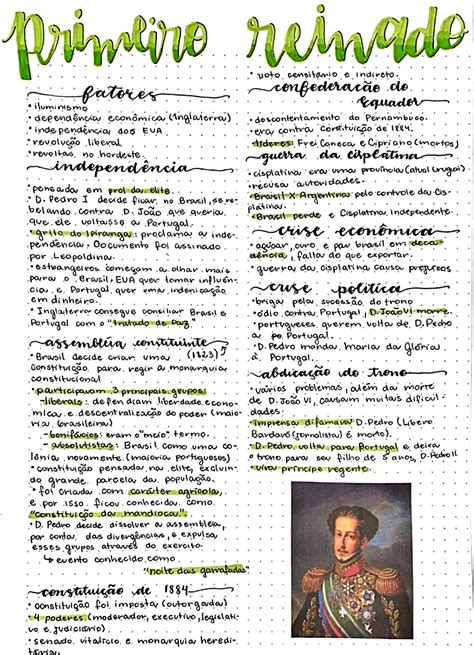 primeiro reinado
fatores
• iluminismo
• dependência econômica (Inglaterra)
• independência dos EUA
• revolução liberal
• revoltas no nordeste.
independência
• pensada em prol da elite.
• D. Pedro I decide ficar no Brasil, se re-
belando contra D. João que queria
que ele voltasse a Portugal.
• grito do Ipiranga: proclama a inde-
pendência; Documento foi assinado
por Leopoldina.
• estrangeiros começam a olhar mais
para o Brasil: EUA quer tomar influên-
cia e Portugal quer uma indenização
em dinheiro.
• Inglaterra consegue conciliar Brasil e
Portugal com o "tratado de Paz"
assembléia constituinte
(1823)
• Brasil decide criar uma
constituição para regir a monarquia
constitucional
• participavam 3 principais grupos:
- liberais: defendiam liberdade econo-
mica e descentralização do poder (maio-
ria brasileira)
- bonifácios: eram o "meio" termo.
- absolutistas: Brasil como uma co-
lônia novamente. (maioria portugueses)
• constituição pensada na elite, excluin-
do grande parcela da população.
• foi criada com caráter agrícola,
e por isso, ficou conhecida como
"constituição da mandioca".
• D. Pedro decide dissolver a assembleia,
por conta das divergências, e expulsa
esses grupos através do exercito.
↳ evento conhecido como
"noite das garrafadas"
constituição de 1884
• constituição foi imposta (outorgada)
• 4 poderes (moderador, executivo, legislati-
vo e judiciário).
• senado vitalício e monarquia heredi-
tária.
• voto censitário e indireto.
confederação do
Equador
• descontentamento do Pernambuco.
• era contra constituição de 1884.
• líderes: Frei Caneca e Cipriano (mortos)
guerra da cisplatina
• cisplatina era uma província (atual Uruguai)
• recusa autoridades.
• Brasil X Argentina pelo controle da Cis-
platina.
• Brasil perde e Cisplatina independente.
crise econômica
• açúcar, ouro, e pau brasil em deca
dência, falta do que exportar.
• guerra da cisplatina causa prejuízos
crise política
• brigas pela sucessão do trono
• ódio contra Portugal, D. João VI morre.
• portugueses querem volta de D. Pedro
a Portugal.
• D. Pedro manda maria da Glória
à Portugal.
abdicação do trono
• vários problemas, além da morte
de D. João VI, causam muitas dificul-
dades.
• Imprensa difamava D. Pedro (Libero
Bardaró (jornalista) é morto).
• D. Pedro volta para Portugal e deixa
o trono para seu filho de 5 anos, D. Pedro II
• vira príncipe regente.